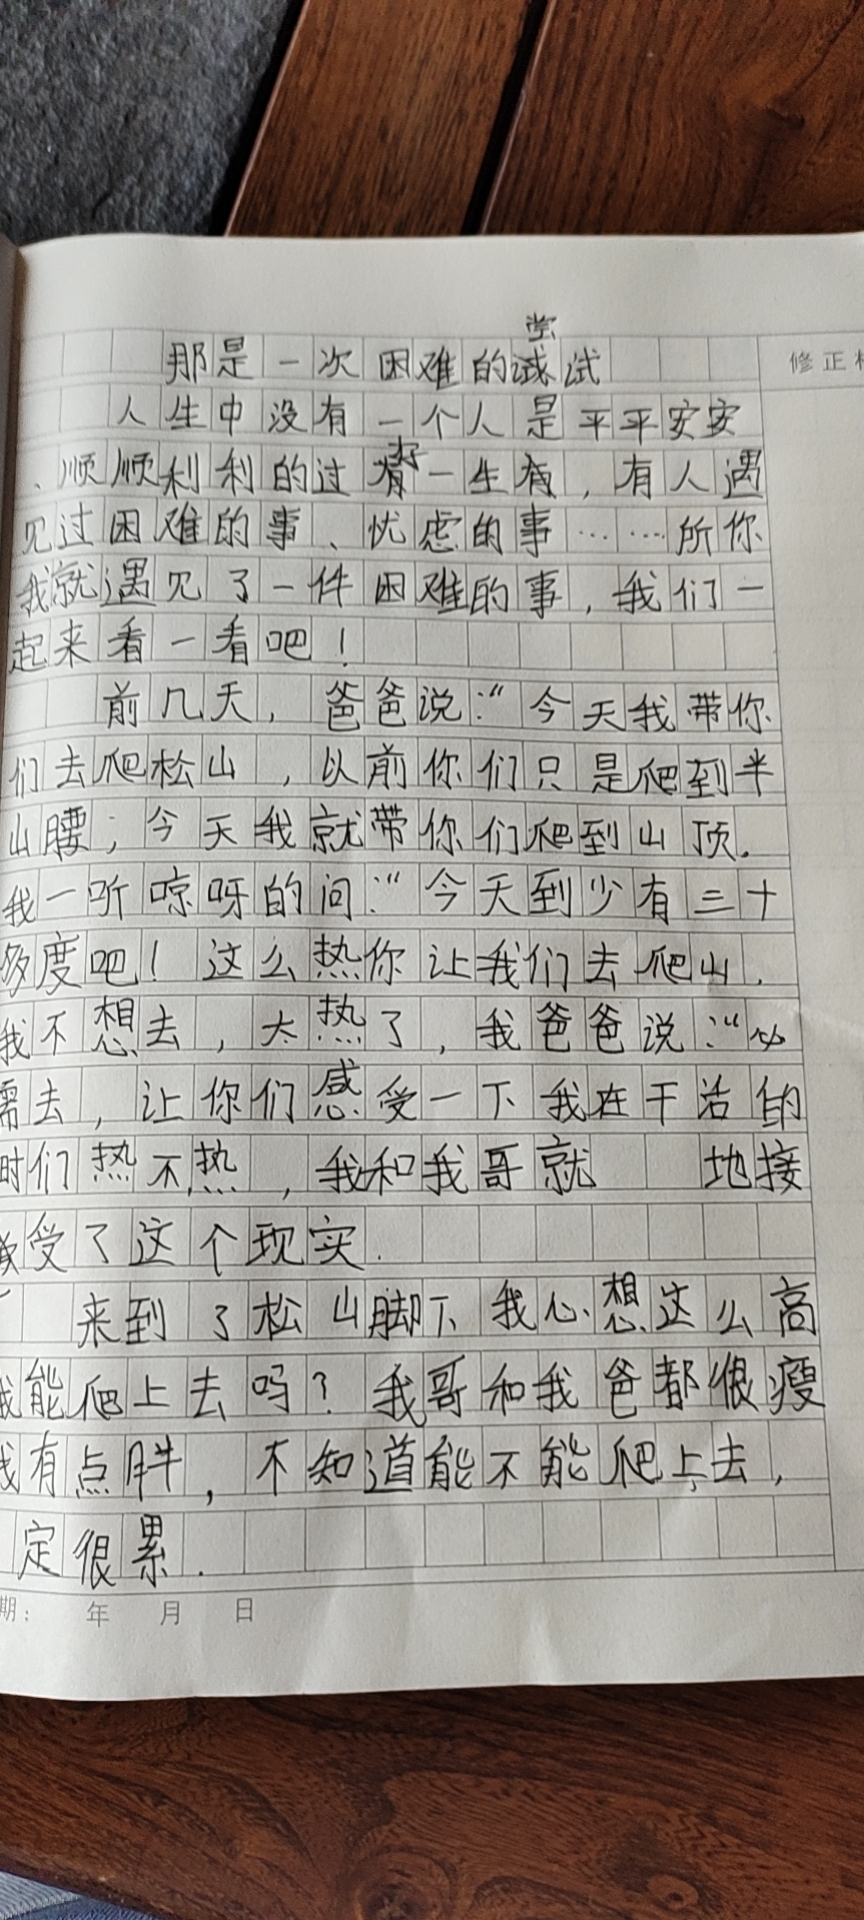 尝
那是一次困难的试
修正
人生中没有一个人是平平安安
、顺顺利利的过好一生有,有人遇
见过困难的事、忧虑的事……所你
我就遇见了一件困难的事,我们一
起来看一看吧!
前几天,爸爸说:“今天我带你
们去爬松山,以前你们只是爬到半
山腰;今天我就带你们爬到山顶.
我一听惊呀的问:“今天到少有三十
多度吧!这么热你让我们去爬山.
我不想去,太热了,我爸爸说:“必
需去,让你们感受一下我在干活的
时们热不热,我和我哥就 地接
受了这个现实.
来到了松山脚下我心想这么高
我能爬上去吗?我哥和我爸都很瘦
我有点胖,不知道能不能爬上去,
定很累.
期: 年 月 日